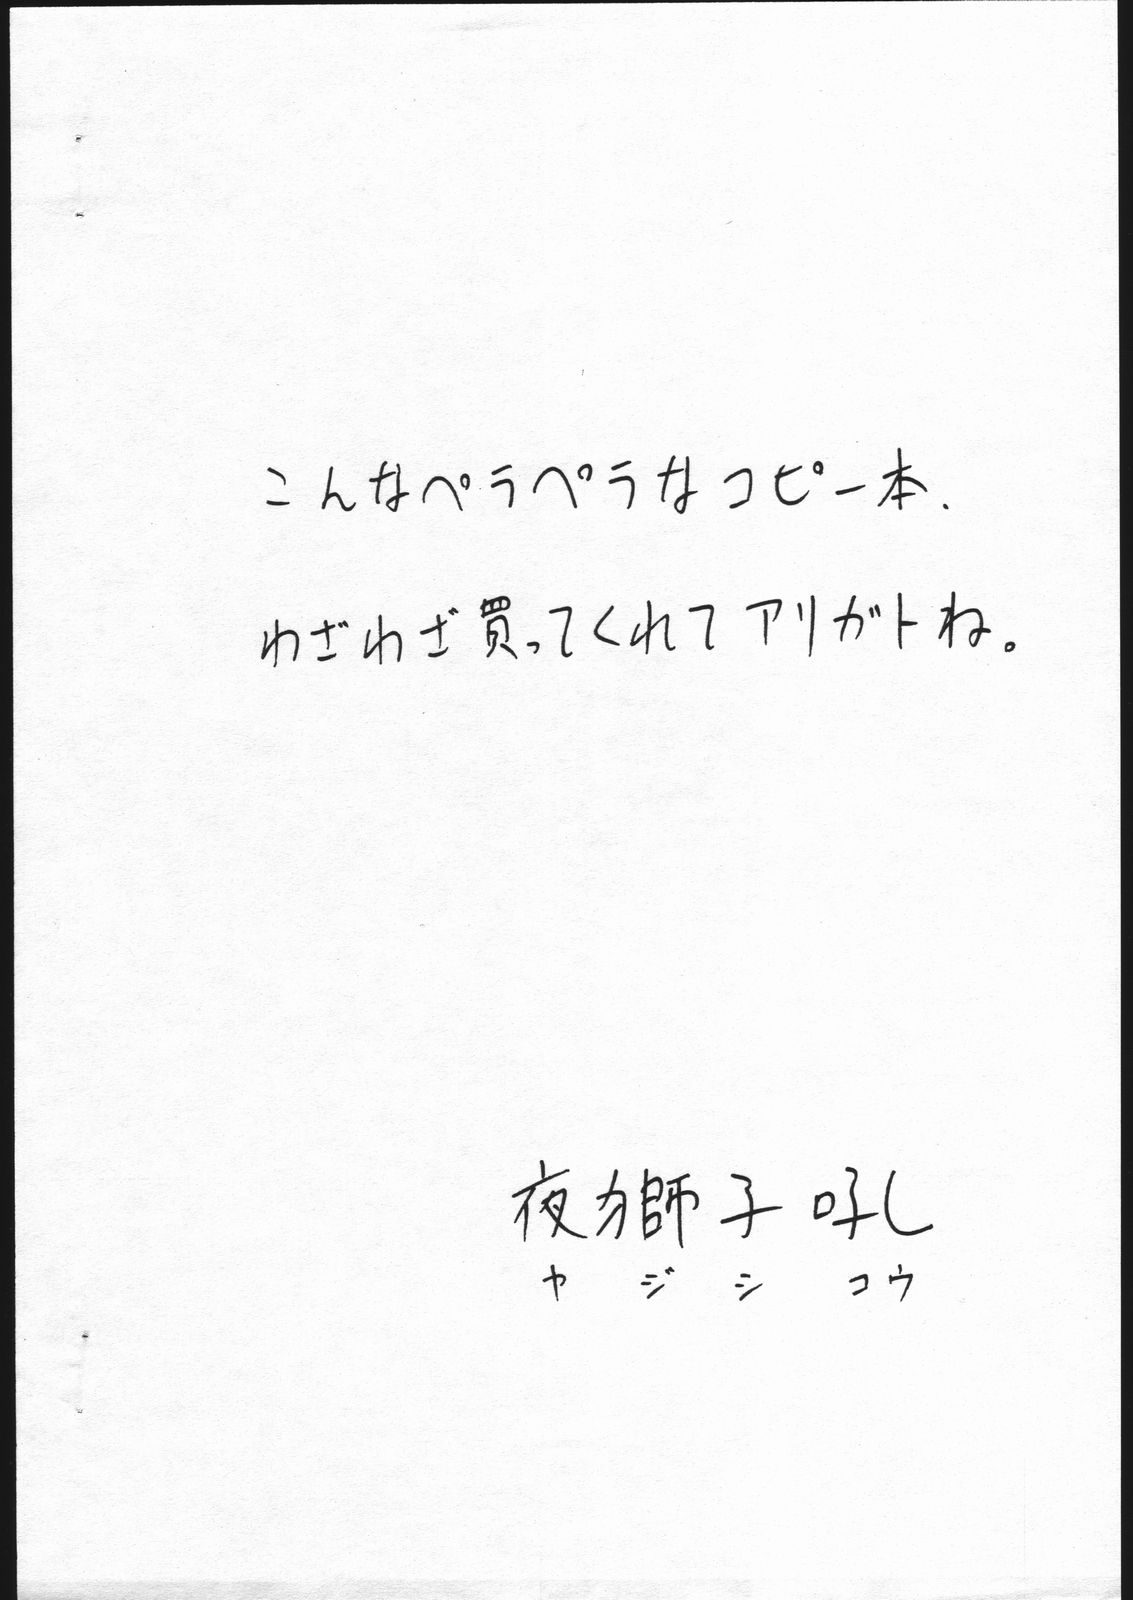 こんなペラペラなコピー本、
わざわざ買ってくれてアリガトね。
夜獅子吼
ヤジシコウ